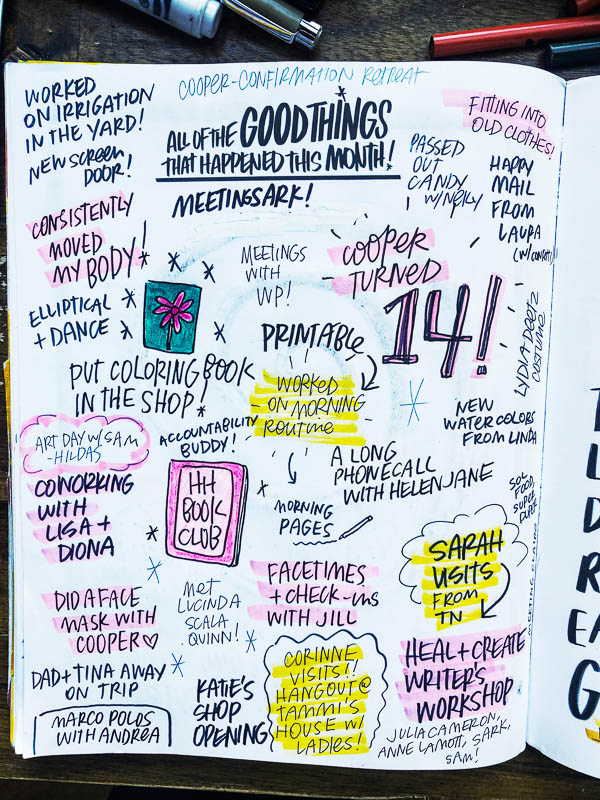 COOPER-CONFIRMATION RETREAT
WORKED
ON IRRIGATION
IN THE YARD!
NEW SCREEN
DOOR!
ALL OF THE GOOD THINGS
THAT HAPPENED THIS MONTH!
MEETING SARK!
FITTING INTO
OLD CLOTHES!
PASSED
OUT
CANDY
HAPPY
MAIL
FROM
LAURA
(W/CONFETTI)
CONSISTENTLY
MOVED
MY BODY!
MEETINGS
WITH
WP!
COOPER
TURNED
14!
ELLIPTICAL
+ DANCE
LYDIA DEETZ
COSTUME
PUT COLORING BOOK
IN THE SHOP!
PRINTABLE
WORKED
ON MORNING
ROUTINE
NEW
WATER COLORS
FROM LINDA
ART DAY W/SAM
-HILDAS
ACCOUNTABILITY
BUDDY!
A LONG
PHONE CALL
WITH HELEN JANE
COWORKING
WITH
LISA +
DIONA
HH
BOOK
CLUB
MORNING
PAGES
SOL
FOOD,
SUPER
DUPER
SARAH
VISITS
FROM
TN
DID A FACE
MASK WITH
COOPER
MET
LUCINDA
SCALA
QUINN!
FACETIMES
+ CHECK-INS
WITH JILL
HEAL + CREATE
WRITER'S
WORKSHOP
JULIA CAMERON,
ANNE LAMOTT, SARK,
SAM!
DAD + TINA AWAY
ON TRIP
MARCO POLOS
WITH ANDREA
KATIE'S
SHOP
OPENING
CORINNE
VISITS!!
HANGOUT @
TAMMI'S
HOUSE W/
LADIES!